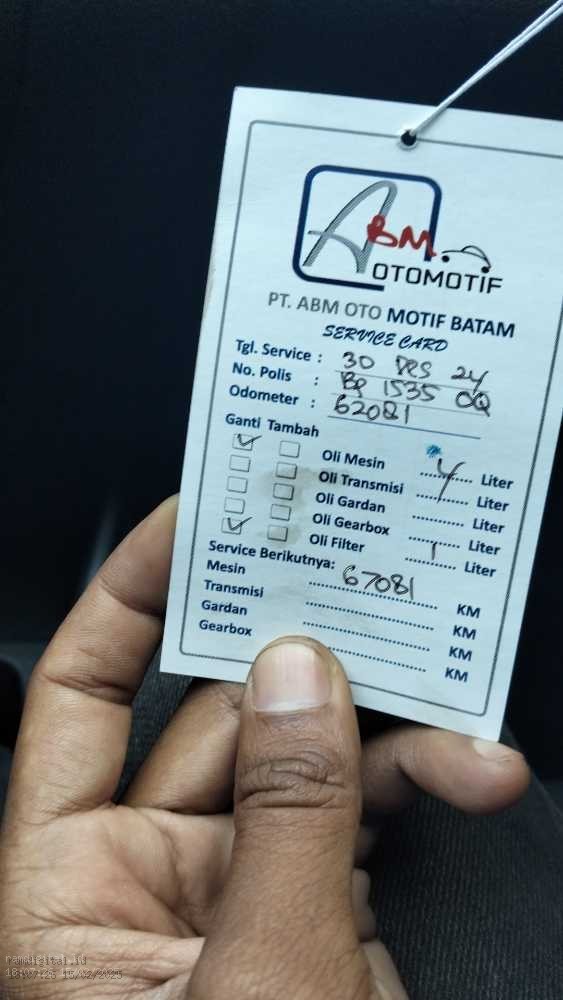 ABM
OTOMOTIF
PT. ABM OTO MOTIF BATAM
SERVICE CARD
Tgl. Service : 30 DES 24
No. Polis : BP 1535 OQ
Odometer : 62081
Ganti Tambah
Oli Mesin 4 Liter
Oli Transmisi Liter
Oli Gardan Liter
Oli Gearbox Liter
Oli Filter 1 Liter
Service Berikutnya:
Mesin 67081 KM
Transmisi KM
Gardan KM
Gearbox KM
18:07:25 15/02/2025